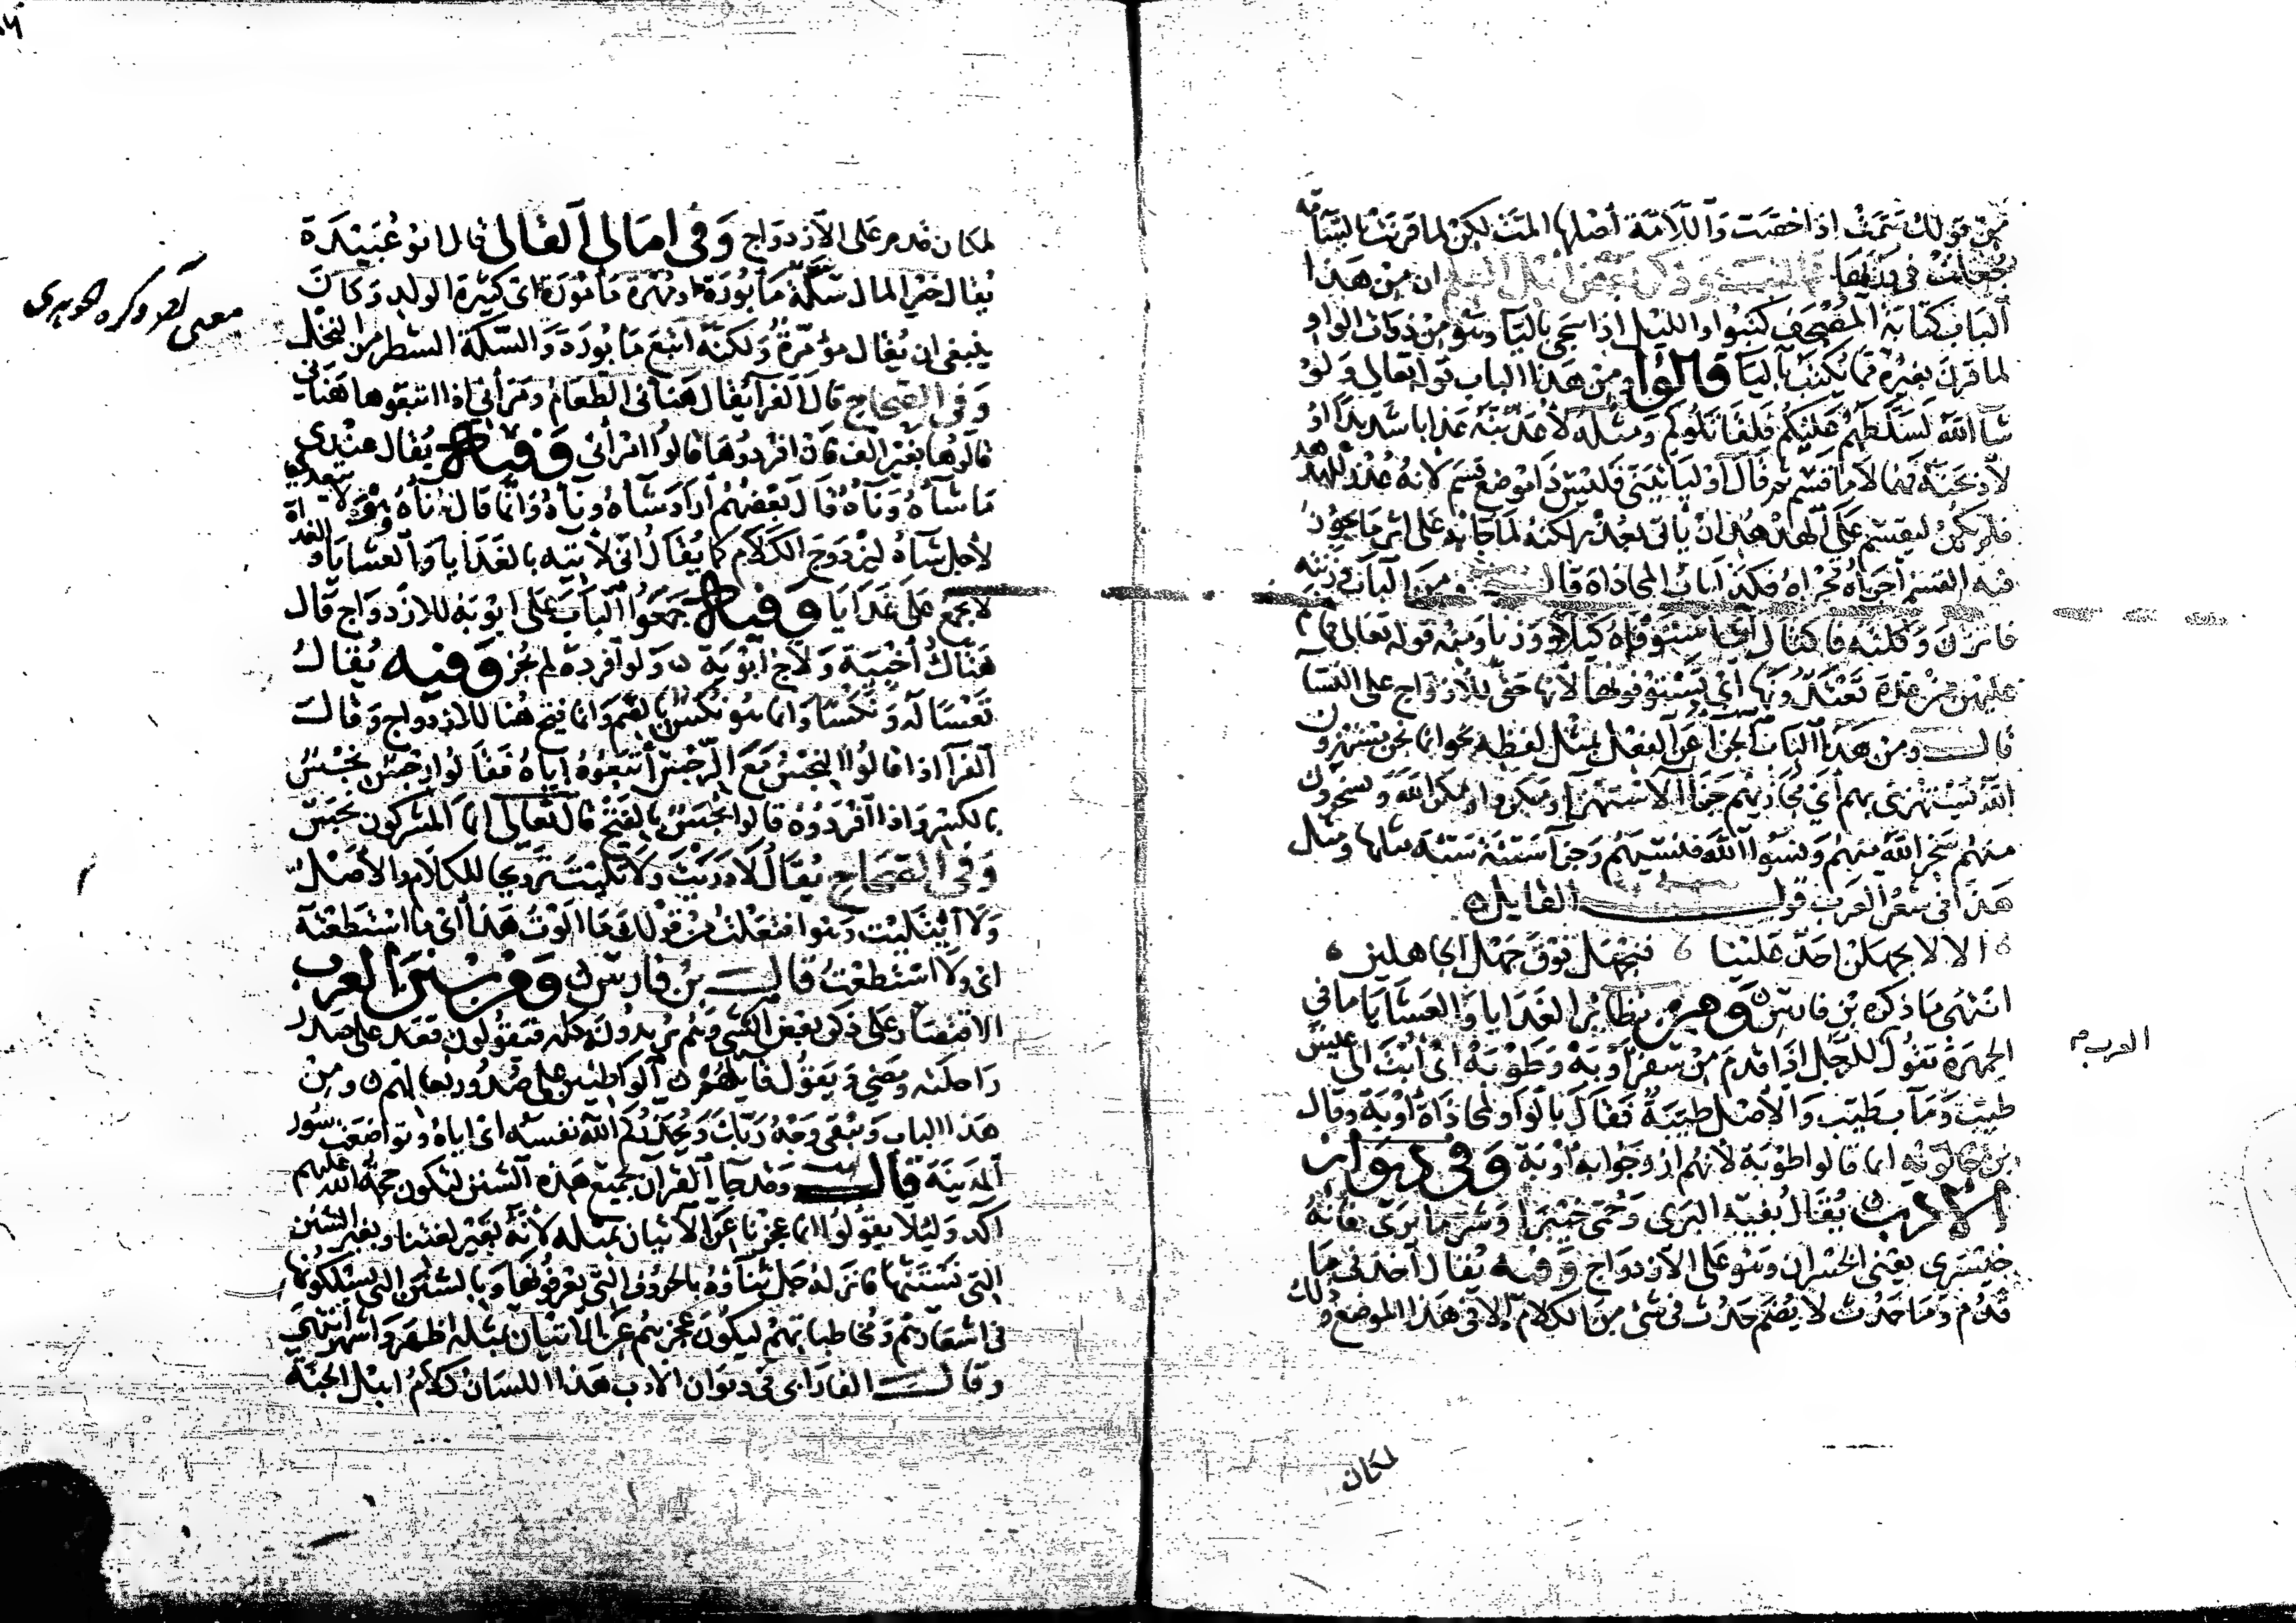 من قولك تممت اذا خصت واللامة أصلها المت لكن لما قرنت بالسامة
جعلت في وزنها قال وذكر بعض اهل العلم ان من هذا
الباب كتابة المصحف كتبوا والليل اذا سجى باليا وهو من ذوات الواو
لما قرن بغيره مما يكتب باليا قالوا ومن هذا الباب قوله تعالى ولو
شا الله لسلطهم عليكم فلقاتلوكم ومثله لأعذبنه عذابا شديدا او
لأذبحنه فهما لاما قسم ثم قال او ليأتيني فليس ذا موضع قسم لانه عذر للهدهد
فلم يكن ليقسم على الهدهد ان يأتي بعذر لكنه لما جا به على اثر ما يجوز
فيه القسم اجراه مجراه فكذا باب المحاذاة قال ومن الباب وزنته
فاتزن وكلته فاكتال أي استوفاه كيلا ووزنا ومنه قوله تعالى فما لكم
عليهن من عدة تعتدونها اي تستوفونها لأنها حق للازواج على النسا
قال ومن هذا الباب الجزا عن الفعل بمثل لفظه نحو انما نحن مستهزون
الله يستهزئ بهم أي يجازيهم جزا الاستهزا ومكروا ومكر الله ويسخرون
منهم سخر الله منهم ونسوا الله فنسيهم وجزا سيئة سيئة مثلها ومثل
هذا في شعر العرب قول القايل
الا لا يجهلن احد علينا فنجهل فوق جهل الجاهلين
انتهى ما ذكره بن فارس ومن نظاير الغدايا والعشايا ما في
الجمهرة تقول للرجل اذا قدم من سفر أوبة وطوبة اي أبت الى عيش
طيب ومآب طيب والأصل طيبة فقال بالواو لمحاذاة أوبة وقال
بن خالويه انما قالوا طوبة لأنهم ازوجوا به أوبة وفي ديوان
الادب يقال بفيه البرى وحمى خيبرا وشر ما يرى فانه
خيسرى يعني الخسران وهو على الازدواج وفيه يقال أخذني ما
قدم وما حدث لا يضم حدث في شي من الكلام الا في هذا الموضع وذلك
لمكان
العرب
لمكان قدم على الازدواج وفي امالي القالي قال ابو عبيدة
يقال خير المال سكة مأبورة او مهرة مأمورة اى كثيرة الولد وكان
ينبغي ان يقال مؤمرة ولكنه اتبع مأبورة والسكة السطر من النخل
وفي الصحاح قال الفرا يقال هنأني الطعام ومرأني اذا اتبعوها هنأني
قالوها بغير الف فاذا افردوها قالوا امرأني وفيه يقال عندي
ما ساءه وناءه قال بعضهم أراد ساءه وأناءه وانما قال ناءه وهو لا يتعدى
لأجل ساءه ليزدوج الكلام كما يقال اني لآتيه بالغدايا والعشايا والغداة
لا تجمع على غدايا وفيه جمعوا الباب على ابوبة للازدواج قال
هتاك أخبية ولاج أبوبة ولو أفرده لم يجز وفيه يقال
تعسا له ونكسا وانما هو نكس بالضم وانما فتح هنا للازدواج وقال
الفرا اذا قالوا النجس مع الرجس أتبعوه اياه فقالوا رجس نجس
بالكسر واذا أفردوه قالوا نجس بالفتح قال تعالى انما المشركون نجس
وفي الصحاح يقال لا دريت ولا تليت تزويجا للكلام والأصل
ولا ائتليت وهو افتعلت من قولك ما الوت هذا اي ما استطعته
اى ولا استطعت قال بن فارس ومن سنن العرب
الاقتصار على ذكر بعض الشي وهم يريدونه كله فيقولون قعد على صدر
راحلته ومضى ويقول قايلهم الواطئين على صدور نعالهم ومن
هذا الباب ويبقى وجه ربك ويحذركم الله نفسه اى اياه وتواضعت سور
المدينة قال وقد جا القرآن بجميع هذه السنن لتكون حجة الله عليهم
آكد وليلا يقولوا انما عجزنا عن الاتيان بمثله لأنه بغير لغتنا وبغير السنن
التي نستنها فانزله جل ثناؤه بالحروف التي يعرفونها وبالسنن التي يسلكونها
في اشعارهم ومخاطباتهم ليكون عجزهم عن الاتيان بمثله اظهر واشهر انتهى
وقال الفارابي في ديوان الادب هذا اللسان كلام اهل الجنة